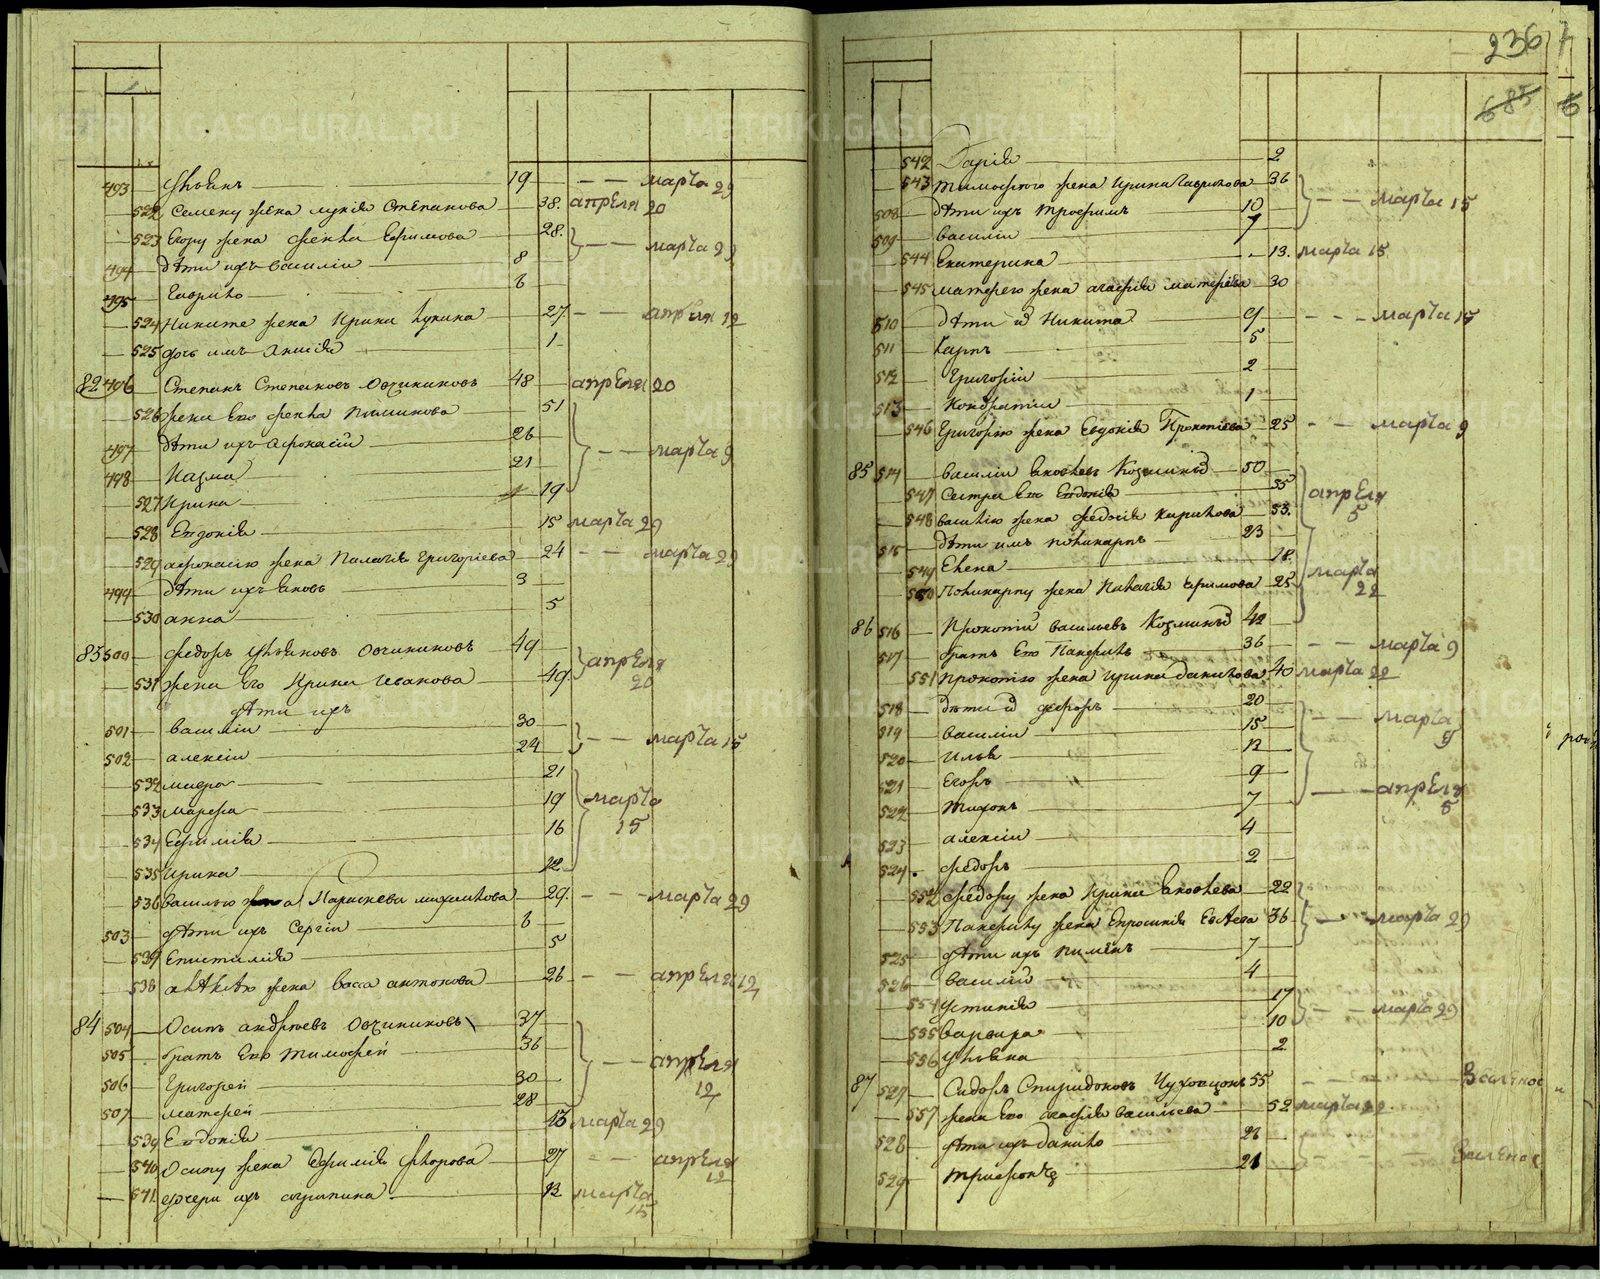 493 Ульянъ 19 - - марта 29
522 Семену жена лукія Степанова 38 апреля 20
523 Егору жена фекла Ефимова 28
- - марта 29
494 дѣти ихъ василіи 8
495 Гаврило 6
524 Никите жена Ирина лукина 27 - - апреля 12
525 дочь имъ Анисія 1
82 496 Степанъ Степановъ Овчинниковъ 48 апреля 20
526 жена Его фекла Пиминова 51
497 дѣти ихъ афонасіи 26
- - марта 9
498 Казма 21
527 Ирина 19
528 Евдокія 15 марта 29
529 афонасію жена Палагія Григоріева 24 - - марта 29
499 дѣти ихъ яковъ 3
530 анна 5
83 500 федоръ Ульяновъ Овчинниковъ 49
апреля 20
531 жена Его Ирина Иванова 49
дѣти ихъ
501 василіи 30
- - марта 15
502 алексіи 24
532 мавра 21
533 марфа 19
марта 15
534 Ефимія 16
535 Ирина 12
536 василью жена Парасковва михаилова 29 - - марта 29
503 дѣти ихъ Сергіи 6
537 Епистимія 5
538 алексѣю жена васса антонова 26 - - апреля 12
84 504 Осипъ андреевъ Овчинниковъ 37
505 братъ Его тимофей 36
- - апреля 12
506 Григорей 30
507 матфей 28
539 Евдокія 13 марта 29
540 Осипу жена Ефимія федорова 27 - - апреля 12
541 дочери ихъ агрипина 12 марта 15
236
685
542 Дарія 2
543 тимофею жена Ирина гаврилова 36
508 дѣти ихъ трофимъ 10
- - марта 15
509 василіи 7
544 Екатерина 13 марта 15
545 матфею жена агафія матфѣева 30
510 дѣти и Никита 9 - - - марта 15
511 карпъ 5
512 Григоріи 2
513 Кондратіи 1
546 Григорію жена Евдокія Прокопіева 25 - - марта 9
85 514 василіи яковлевъ Козминыхъ 50
547 Сестра Его Евдокія 55
апреля 5
548 василію жена федосія кирилова 53
515 дѣти имъ поликарпъ 23
549 Елена 18
марта 22
550 Поликарпу жена Палагія Ефимова 25
86 516 Прокопіи васильевъ Козминыхъ 42
517 братъ Его Панфилъ 36 - - марта 9
551 Прокопію жена Ирина данилова 40 марта 22
518 дѣти и федоръ 20
519 василіи 15 - - марта 9
520 Илья 12
521 Егоръ 9
522 тихонъ 7 - - апреля 5
523 алексіи 4
524 федоръ 2
552 федору жена Ирина яковлева 22
553 Панфилу жена Епросинія 36 - - марта 29
525 дѣти ихъ пименъ 7
526 василіи 4
554 Устинія 17 - - марта 29
555 варвара 10
556 Ульяна 2
87 527 Сидоръ Спиридоновъ 55
557 жена Его агафія васильева 52 марта 22
528 дѣти ихъ данило 26
529 трифонъ 21